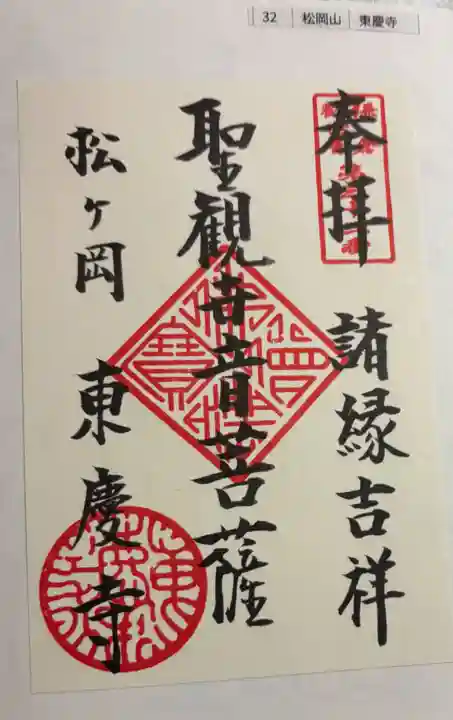 32 松岡山 東慶寺
奉拝 諸縁吉祥
聖観世音菩薩
松ヶ岡 東慶寺
佛法僧寶